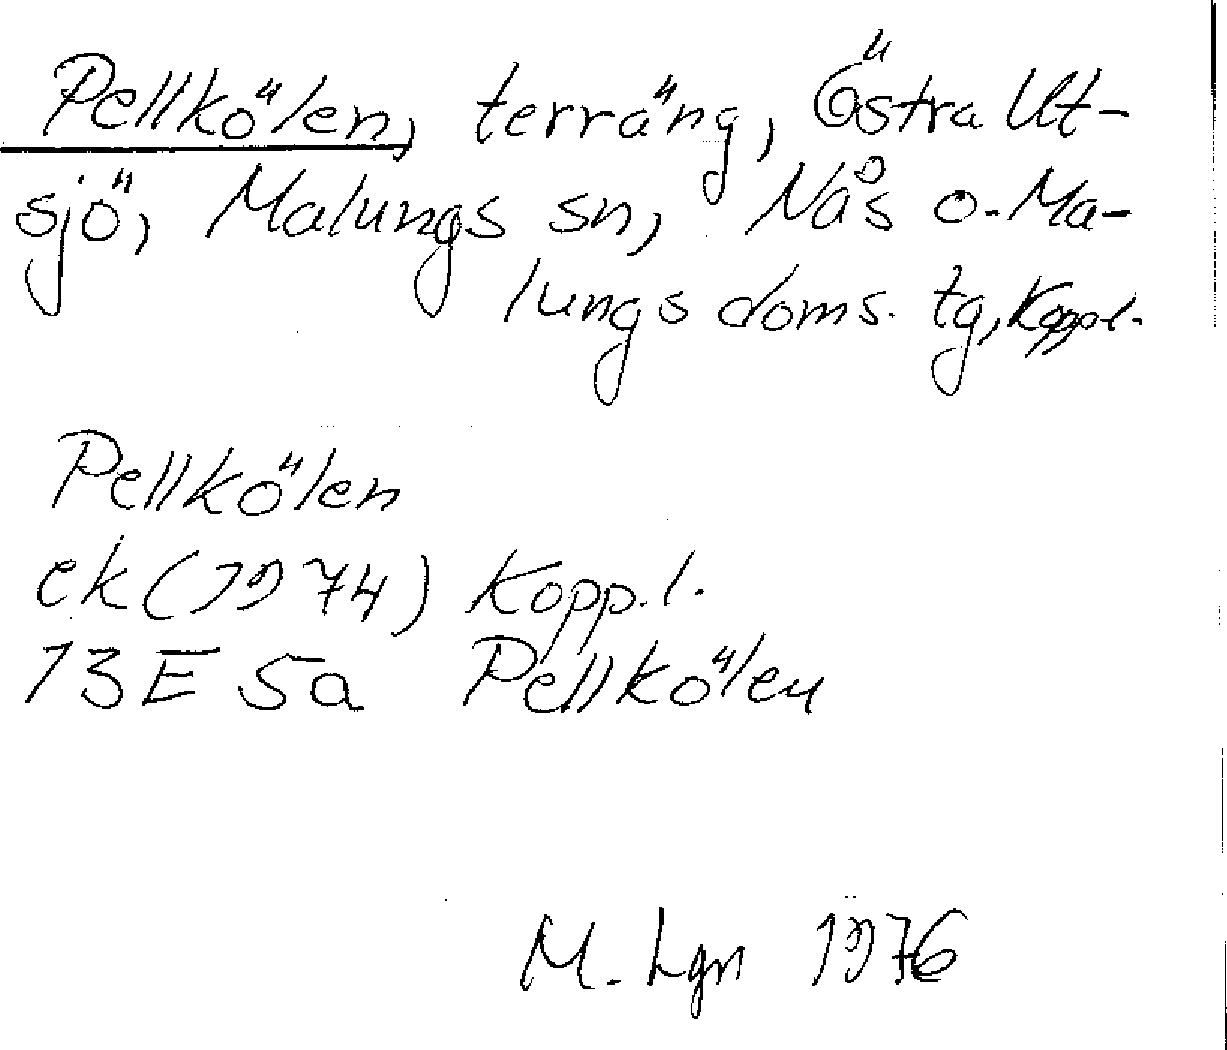 Pellkölen, terräng, Östra Ut-
sjö, Malungs sn, Nås o. Ma-
lungs doms. tg, Koppl.
Pellkölen
ek (1974) Kopp.l.
13E 5a Pellkölen
M. Lgn 1976